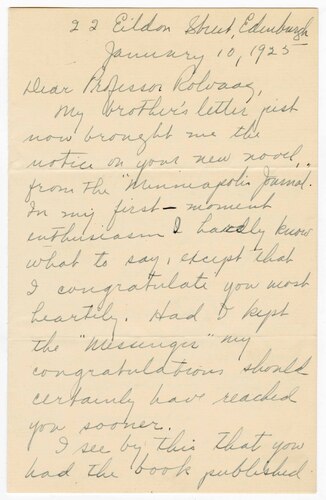 22 Eildon Street, Edinburgh
January 10, 1925
Dear Professor Rolvaag,
My brother's letter just
now brought me the
notice on your new novel,
from the "Minneapolis Journal.
In my first-moment
enthusiasm I hardly know
what to say, except that
I congratulate you most
heartily. Had I kept
the "Messenger" my
congratulations should
certainly have reached
you sooner.
I see by this that you
had the book published